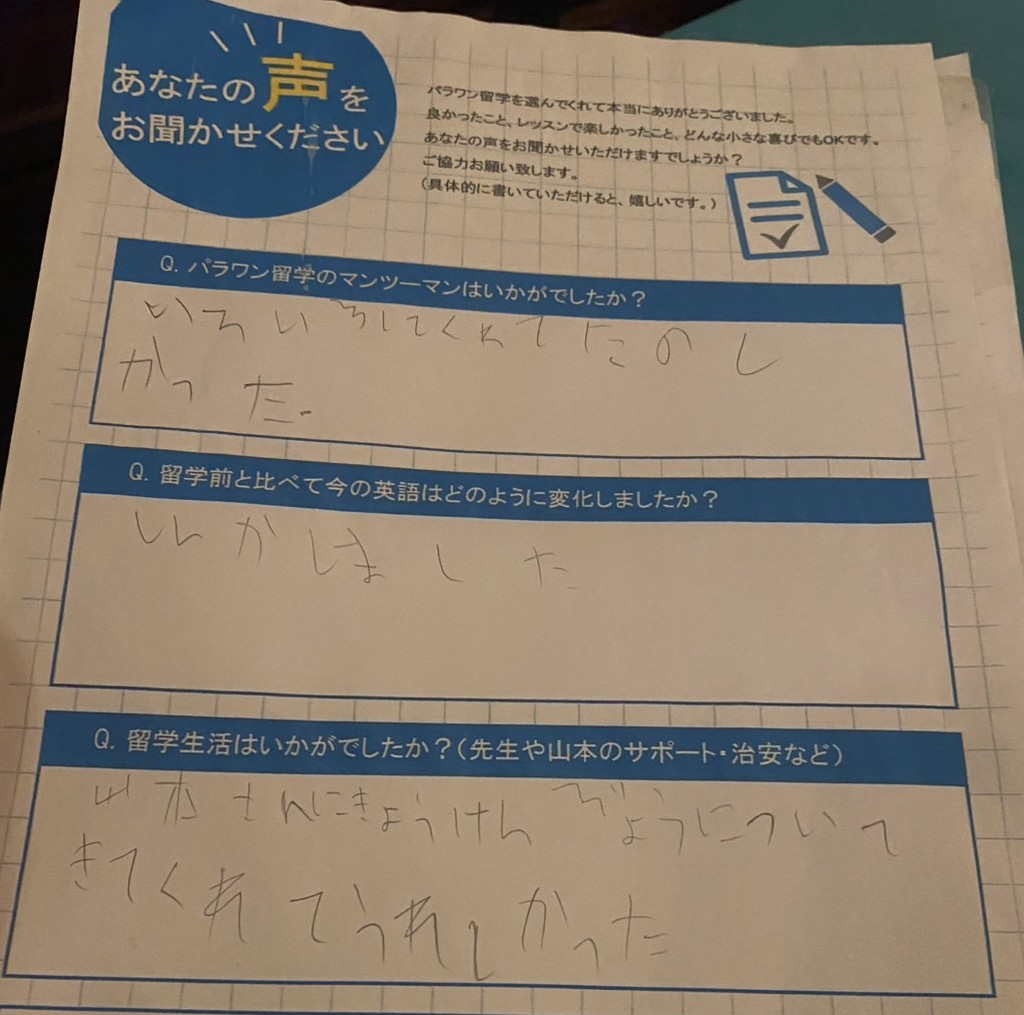 あなたの声を
お聞かせください
パラワン留学を選んでくれて本当にありがとうございました。
良かったこと、レッスンで楽しかったこと、どんな小さな喜びでもOKです。
あなたの声をお聞かせいただけますでしょうか？
ご協力お願い致します。
（具体的に書いていただけると、嬉しいです。）
Q. パラワン留学のマンツーマンはいかがでしたか？
いろいろしてくれてたのし
かった。
Q. 留学前と比べて今の英語はどのように変化しましたか？
しました
Q. 留学生活はいかがでしたか？（先生や山本のサポート・治安など）
山本さんにきょうけんびょうについて
きてくれてうれしかった